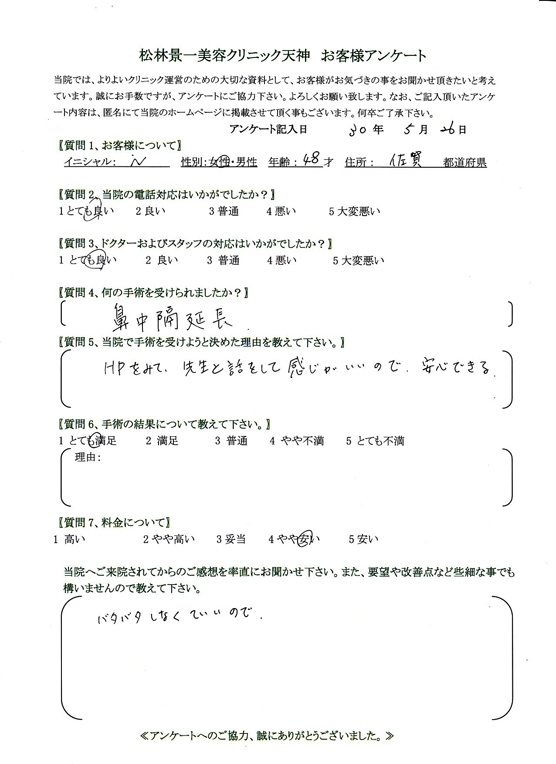 松林景一美容クリニック天神　お客様アンケート
当院では、よりよいクリニック運営のための大切な資料として、お客様がお気づきの事をお聞かせ頂きたいと考え
ています。誠にお手数ですが、アンケートにご協力下さい。よろしくお願い致します。なお、ご記入頂いたアンケ
ート内容は、匿名にて当院のホームページに掲載させて頂く事もございます。何卒ご了承下さい。
アンケート記入日　30 年　5 月　26 日
【質問1、お客様について】
イニシャル：　性別：女性・男性　年齢：48 才　住所：　佐賀　都道府県
【質問2、当院の電話対応はいかがでしたか？】
1 とても良い　2 良い　3 普通　4 悪い　5 大変悪い
【質問3、ドクターおよびスタッフの対応はいかがでしたか？】
1 とても良い　2 良い　3 普通　4 悪い　5 大変悪い
【質問4、何の手術を受けられましたか？】
鼻中隔延長
【質問5、当院で手術を受けようと決めた理由を教えて下さい。】
HPをみて、先生と話をして感じがいいので、安心できる
【質問6、手術の結果について教えて下さい。】
1 とても満足　2 満足　3 普通　4 やや不満　5 とても不満
理由：
【質問7、料金について】
1 高い　2 やや高い　3 妥当　4 やや安い　5 安い
当院へご来院されてからのご感想を率直にお聞かせ下さい。また、要望や改善点など些細な事でも
構いませんので教えて下さい。
バタバタしなくていいので、
≪アンケートへのご協力、誠にありがとうございました。≫